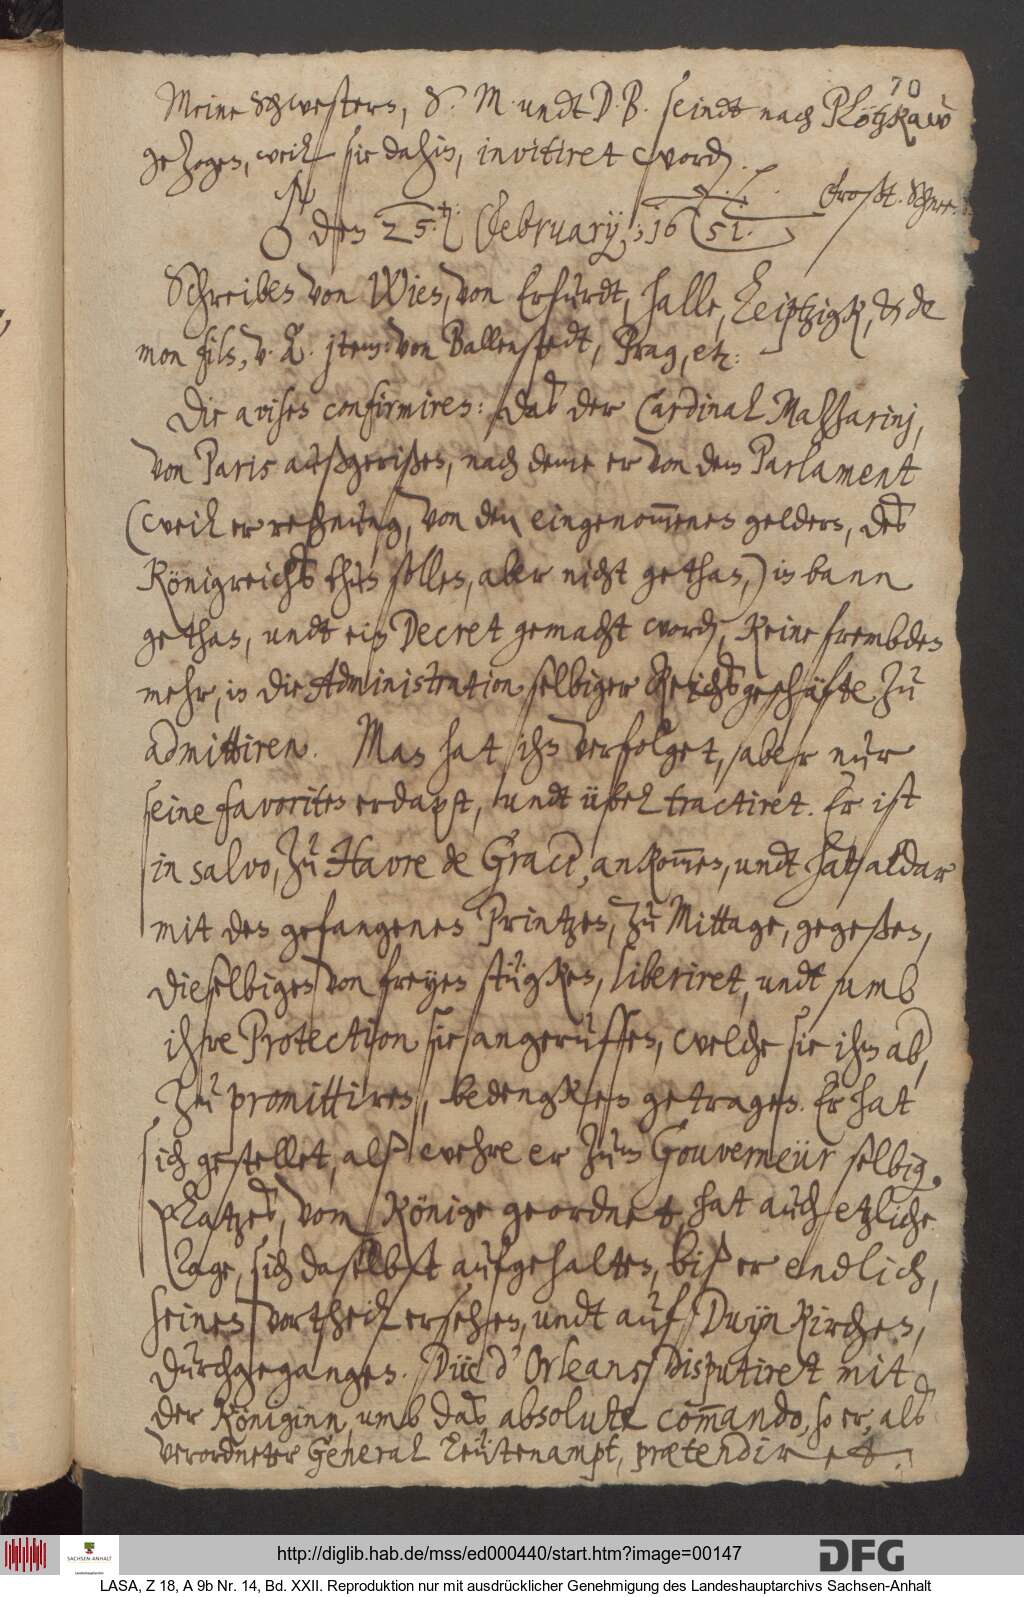 70
Meine Schwestern, S. M. undt D. B. seindt nach Plötzkaw
gezogen, weil sie dahin, invitiret word.
♂ den 25.t: February; 1651.
Frost. Schnee.
Schreiben von Wien, von Erfurdt, Halle, Leiptzigk, & de
mon fils, v. A. jtem: von Ballenstedt, Prag, etc:
Die avisen confirmiren: daß der Cardinal Massarinj,
von Paris außgerißen, nach deme er von dem Parlament
(weil er rechnung, von den eingenom̅enen geldern, des
Königreichs thun sollen, aber nicht gethan,) in bann
gethan, undt ein Decret gemacht word, keine frembden
mehr, in die Administration selbiger Reichsgeschäfte zu
admittiren. Man hat ihn verfolget, aber nur
seine favoriten erdapt, undt übel tractiret. Er ist
in salvo, zu Havre de Grace, ankom̅en, undt hat aldar
mit den gefangenen Printzen, zu Mittage, gegeßen,
dieselbigen von freyen stügken, liberiret, undt umb
ihre Protection sie angeruffen, welche sie ihm ab,
zu promittiren, bedengken getragen. Er hat
sich gestellet, alß wehre er zum Gouverneur selbig.
Platzes, vom Könige geordnet, hat auch etzliche
Tage, sich daselbst aufgehalten, biß er endlich,
seinen vortheil ersehen, undt auf Duynkirchen,
durchgegangen. Duc d'Orleans disputiret mit
der Königinn, umb das absolute com̅ando, so er, als
verordneter General Leütenampt, prætendiret.
http://diglib.hab.de/mss/ed000440/start.htm?image=00147
DFG
SACHSEN-ANHALT
LASA, Z 18, A 9b Nr. 14, Bd. XXII. Reproduktion nur mit ausdrücklicher Genehmigung des Landeshauptarchivs Sachsen-Anhalt